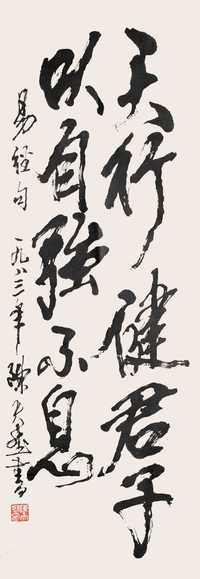 天行健君子
以自强不息
易经句 一九八三年 陈大羽书